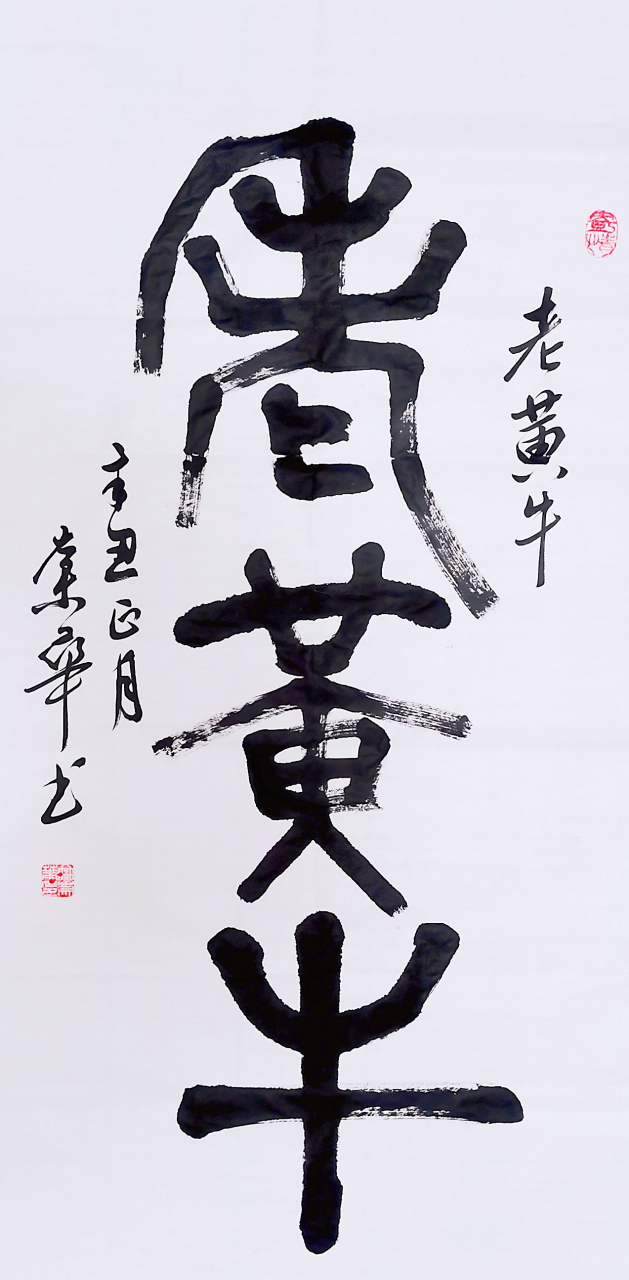 老黄牛
老黄牛
辛丑正月
荣华书